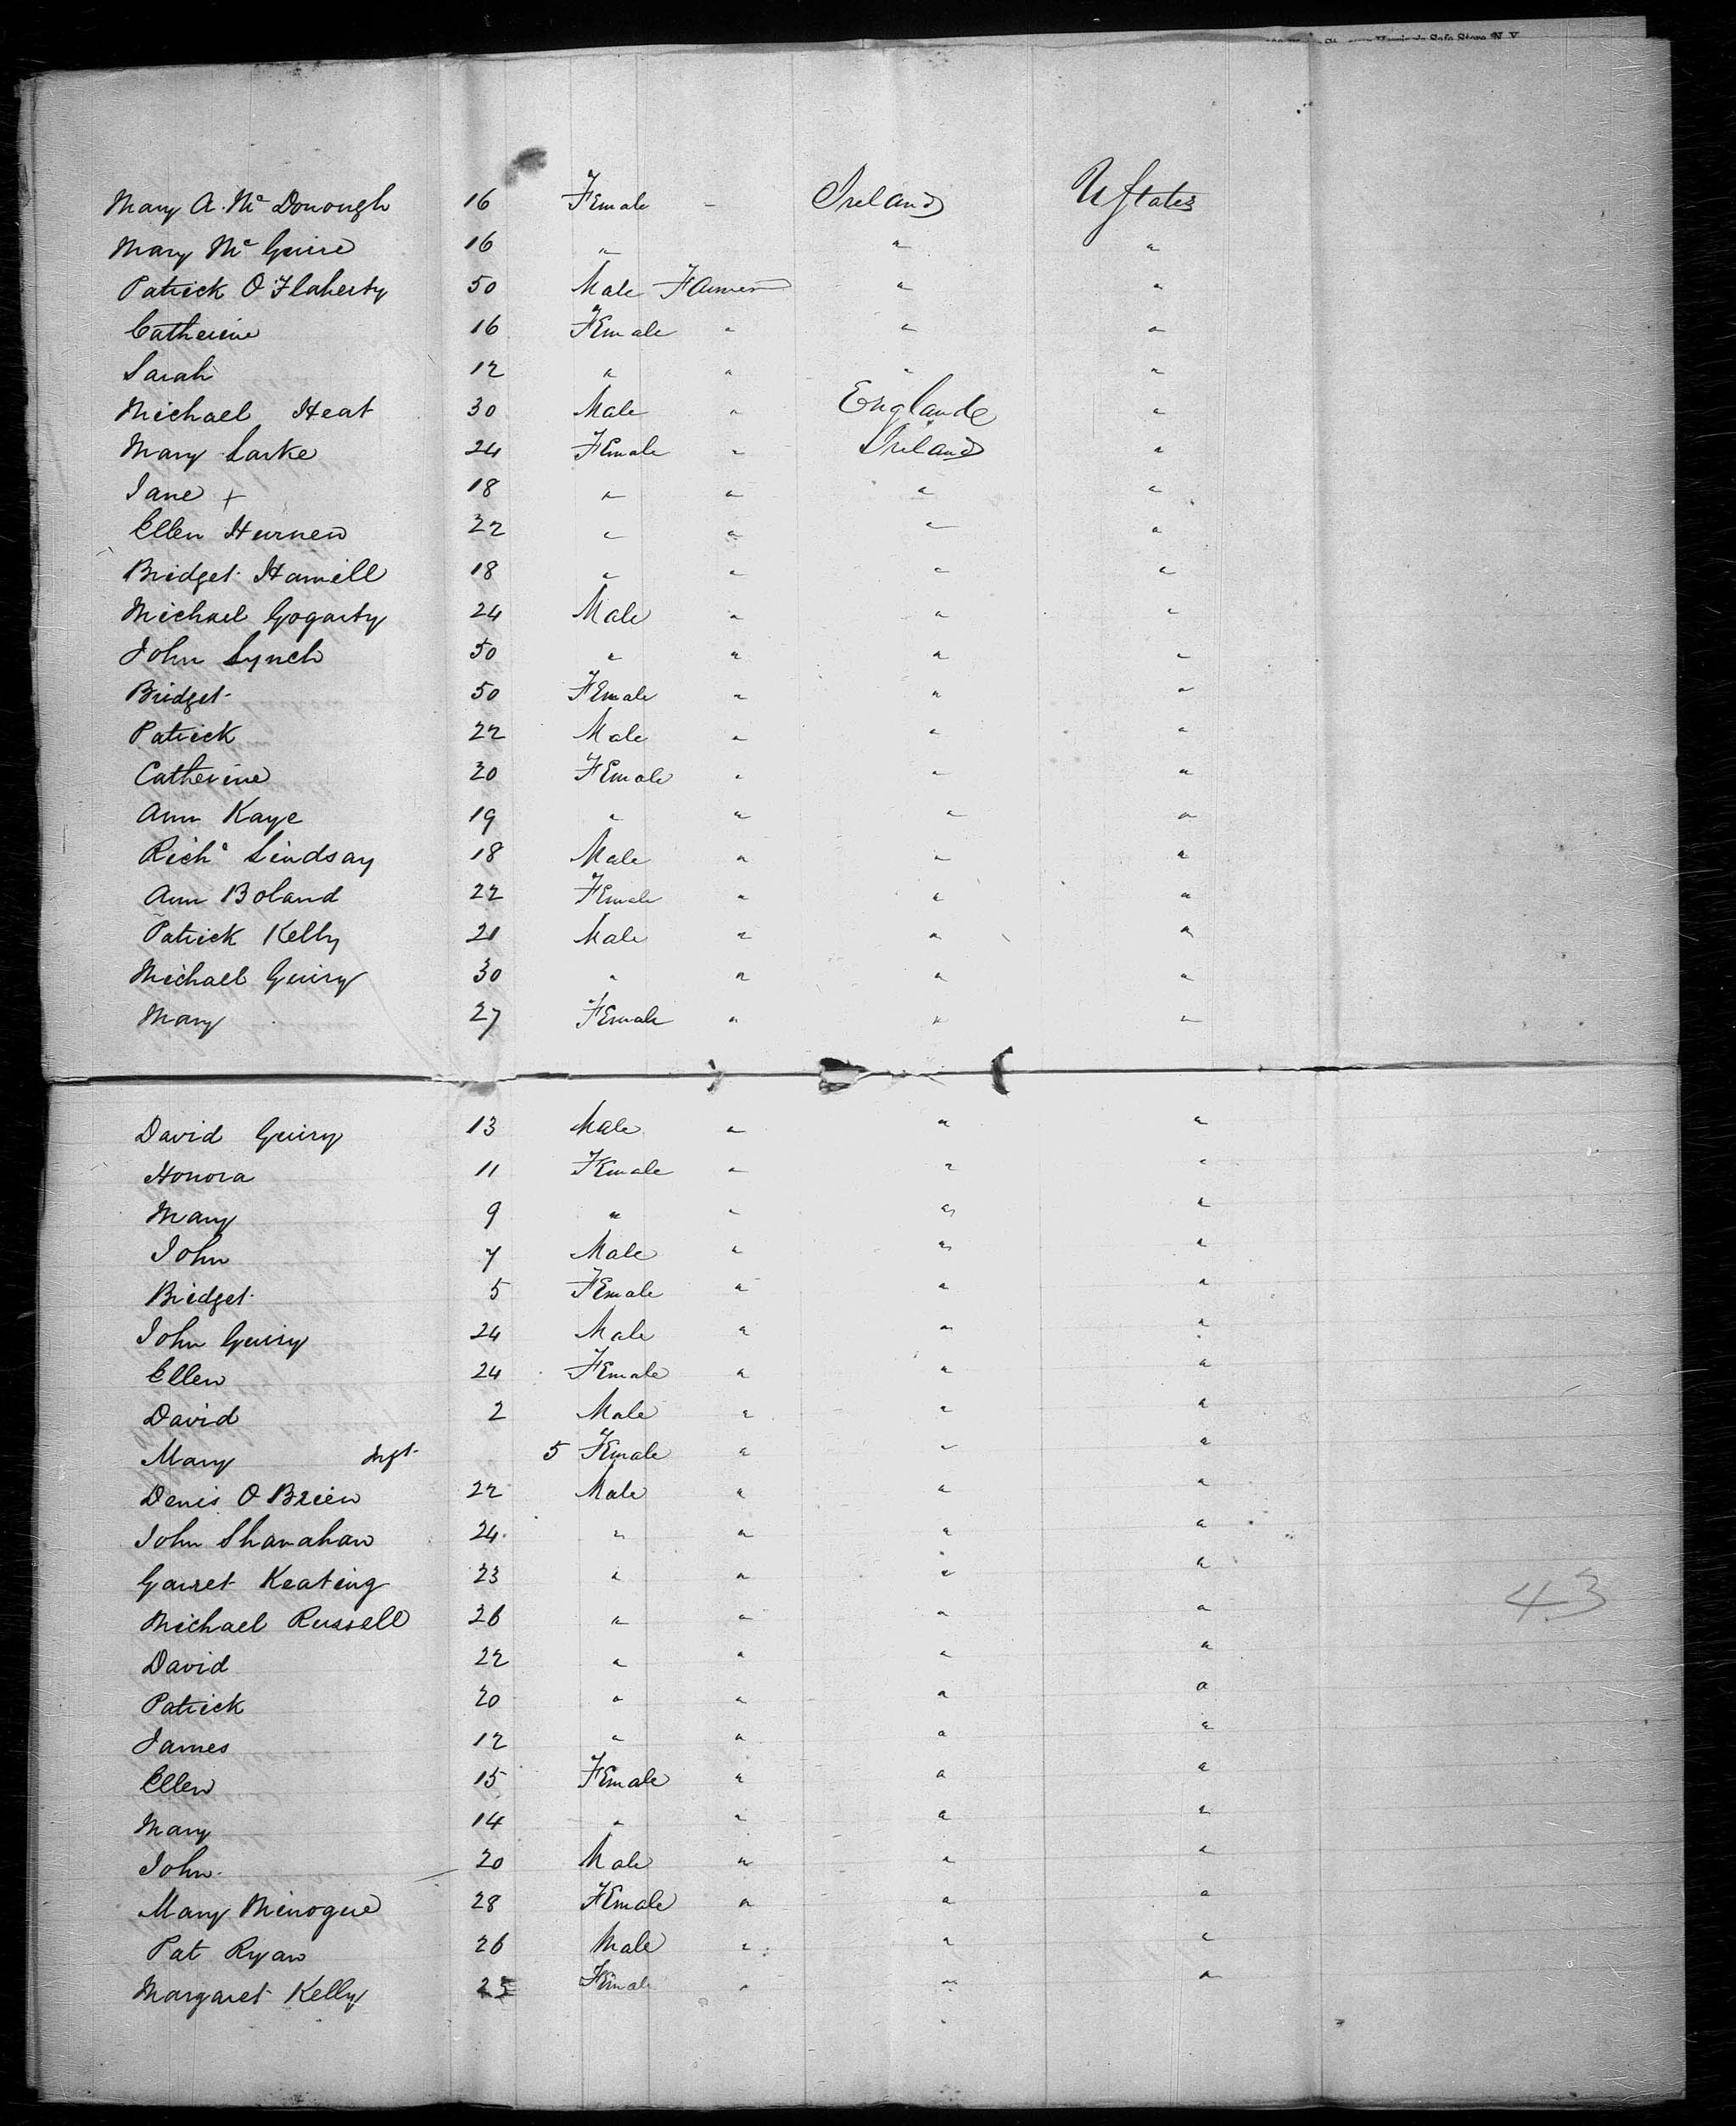 Safe Store, N.Y.
Mary A. Mc Donough 16 Female - Ireland U States
Mary Mc Guire 16 " " "
Patrick O Flaherty 50 Male Farmer " "
Catherine 16 Female " " "
Sarah 12 " " " "
Michael Heat 30 Male " England "
Mary Larke 24 Female " Ireland "
Jane + 18 " " " "
Ellen Hurnen 22 " " " "
Bridget Hamill 18 " " " "
Michael Gogarty 24 Male " " "
John Lynch 50 " " " "
Bridget 50 Female " " "
Patrick 22 Male " " "
Catherine 20 Female " " "
Ann Kaye 19 " " " "
Richd Lindsay 18 Male " " "
Ann Boland 22 Female " " "
Patrick Kelly 21 Male " " "
Michael Guiry 30 " " " "
Mary 27 Female " " "
David Guiry 13 Male " " "
Honora 11 Female " " "
Mary 9 " " " "
John 7 Male " " "
Bridget 5 Female " " "
John Guiry 24 Male " " "
Ellen 24 Female " " "
David 2 Male " " "
Mary Inft 5 Female " " "
Denis O Brien 22 Male " " "
John Shanahan 24 " " " "
Garret Keating 23 " " " "
Michael Russell 26 " " " "
43
David 22 " " " "
Patrick 20 " " " "
James 12 " " " "
Ellen 15 Female " " "
Mary 14 " " " "
John 20 Male " " "
Mary Minogue 28 Female " " "
Pat Ryan 26 Male " " "
Margaret Kelly 25 Female " " "